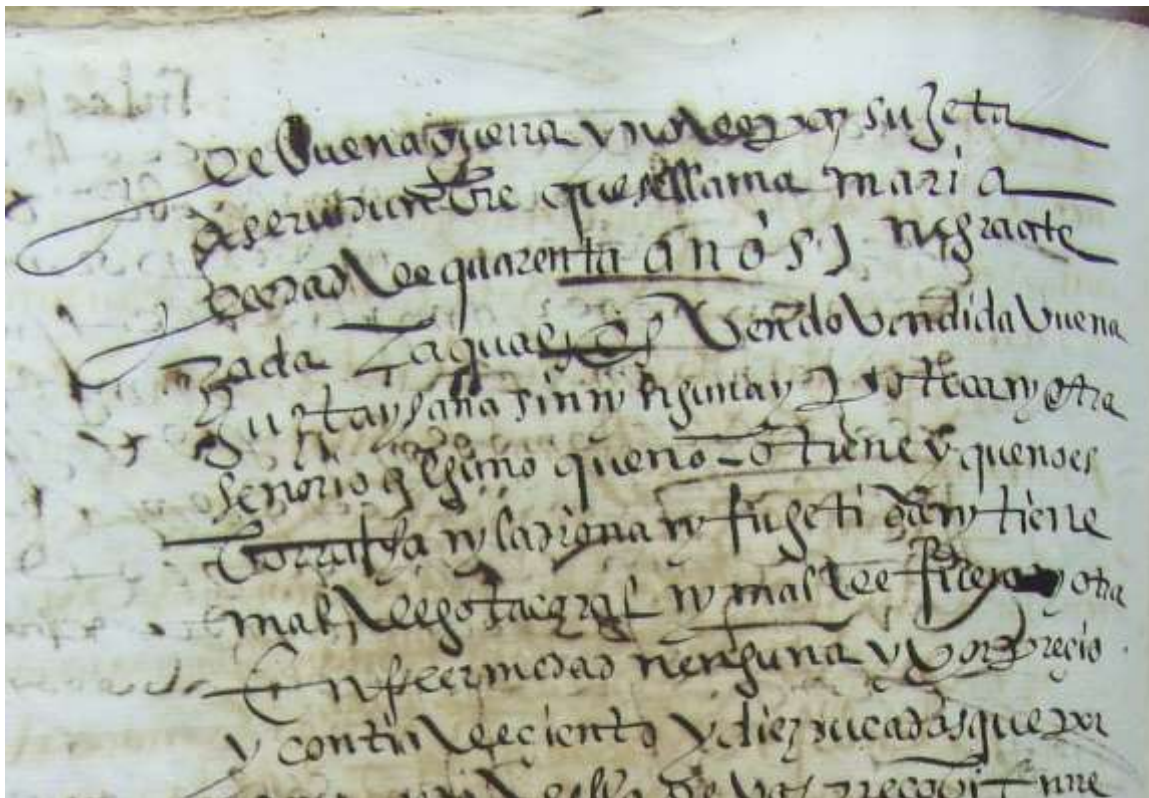 de buena guerra y no de paz sujeta
a serudunbre que se llama maria
de hedad de quarenta años y negra ate
zada la qual vos vendo vendida buena
justa y sana sin ni otra
senorio que no lo tiene y que no es
borracha ny ladrona ny fugetiba ny tiene
mal de gota ny mal de ny otra
enfermedad nenguna y por precio
y contia de ciento y diez ducados que por